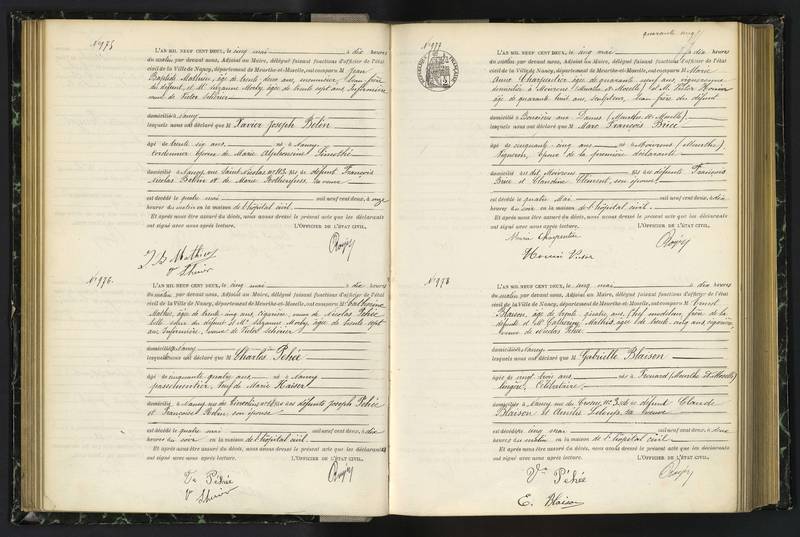 N° 975
L'AN MIL NEUF CENT DEUX, le cinq mai à dix heures
du matin par devant nous, Adjoint au Maire, délégué faisant fonctions d'officier de l'état
civil de la Ville de Nancy, département de Meurthe-et-Moselle, ont comparu M Jean
Baptiste Mathieu, âgé de trente deux ans, menuisier, beau frère
du défunt, et Me Suzanne Morby, âgée de trente sept ans, Infirmière
veuve de Victor
domicilié à Nancy
lesquels nous ont déclaré que M Xavier Joseph Belin
âgé de trente six ans né à Nancy
cordonnier époux de Marie Alphonsine
domicilié à Nancy, rue Saint Nicolas n° 113 fils de défunt François
Nicolas Belin et de Marie sa veuve
est décédé le quatre mai mil neuf cent deux, à onze
heures du matin en la maison de l'hôpital civil.
Et après nous être assuré du décès, nous avons dressé le présent acte que les déclarants
ont signé avec nous après lecture. L'OFFICIER DE L'ÉTAT CIVIL,
J B Mathieu
N° 976.
L'AN MIL NEUF CENT DEUX, le cinq mai à dix heures
du matin par devant nous, Adjoint au Maire, délégué faisant fonctions d'officier de l'état
civil de la Ville de Nancy, département de Meurthe-et-Moselle, ont comparu M Catherine
Mathis, âgée de trente cinq ans, cigarière, veuve de Nicolas Péhée
belle sœur du défunt et Me Suzanne Morby, âgée de trente sept
ans, Infirmière, veuve de Victor
domiciliées à Nancy
lesquelles nous ont déclaré que M Charles Péhée
âgé de cinquante quatre ans né à Nancy
passementier, veuf de Marie Kaiser
domicilié à Nancy, rue fils des défunts Joseph Péhée
et Françoise son épouse
est décédé le quatre mai mil neuf cent deux, à dix
heures du soir en la maison de l'hôpital civil.
Et après nous être assuré du décès, nous avons dressé le présent acte que les déclarants
ont signé avec nous après lecture. L'OFFICIER DE L'ÉTAT CIVIL,
Ve Péhée
quarante cinq
N° 977
L'AN MIL NEUF CENT DEUX, le cinq mai à dix heures
du matin par devant nous, Adjoint au Maire, délégué faisant fonctions d'officier de l'état
civil de la Ville de Nancy, département de Meurthe-et-Moselle, ont comparu M Marie
Anne Charpentier âgée de quarante neuf ans, vigneronne
domiciliée à (Meurthe et Moselle) et M. Victor
âgé de quarante huit ans, sculpteur, beau frère du défunt
domicilié à aux Dames (Meurthe et Moselle)
lesquels nous ont déclaré que M Marc François Brice
âgé de cinquante cinq ans né à (Meurthe),
vigneron, époux de la première déclarante
domicilié fils des défunts François
Brice et Claudine Clément, son épouse
est décédé le quatre mai mil neuf cent deux, à dix
heures du soir en la maison de l'hôpital civil.
Et après nous être assuré du décès, nous avons dressé le présent acte que les déclarants
ont signé avec nous après lecture. L'OFFICIER DE L'ÉTAT CIVIL,
Marie Charpentier
Victor
N° 978
L'AN MIL NEUF CENT DEUX, le cinq mai à dix heures
du matin par devant nous, Adjoint au Maire, délégué faisant fonctions d'officier de l'état
civil de la Ville de Nancy, département de Meurthe-et-Moselle, ont comparu M Ernest
Blaison, âgé de trente quatre ans, Chef modeleur, frère de la
défunte et Me Catherine Mathis, âgée de trente cinq ans, cigarière,
veuve de Nicolas Péhée
domiciliés à Nancy
lesquels nous ont déclaré que M Gabrielle Blaison
âgée de vingt trois ans née à Frouard (Meurthe et Moselle)
lingère, Célibataire
domiciliée à Nancy, rue n° 3 fille de défunt Claude
Blaison et Amélie sa veuve
est décédée le cinq mai mil neuf cent deux, à deux
heures du matin en la maison de l'hôpital civil
Et après nous être assuré du décès, nous avons dressé le présent acte que les déclarants
ont signé avec nous après lecture. L'OFFICIER DE L'ÉTAT CIVIL,
Ve Péhée
E. Blaison